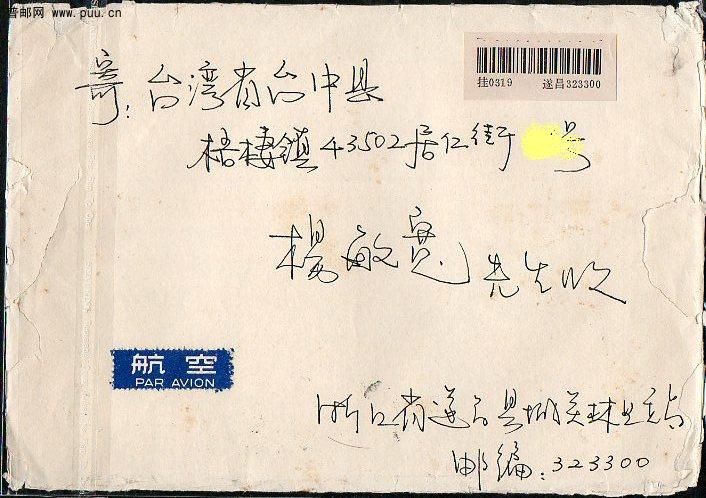 普邮网 www.puu.cn
挂0319 遂昌323300
寄:台湾省台中县
梧棲鎮43502居仁街 号
楊敏寬先生收
航空
PAR AVION
浙江省遂昌县城关林业站
邮编:323300